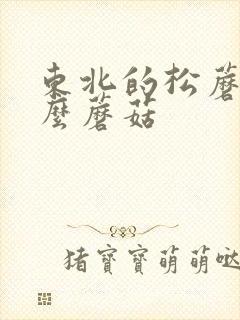 东北的松蘑
麼蘑菇
猪寶寶萌萌哒